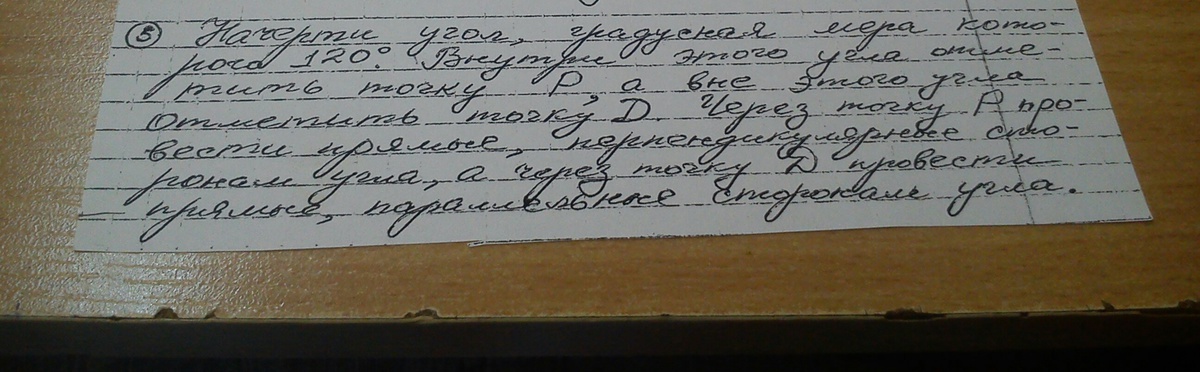 ⑤ Начерти угол, градусная мера кото-
рого 120°. Внутри этого угла отме-
тить точку P, а вне этого угла
отметить точку D. Через точку P про-
вести прямые, перпендикулярные сто-
ронам угла, а через точку D провести
прямые, параллельные сторонам угла.